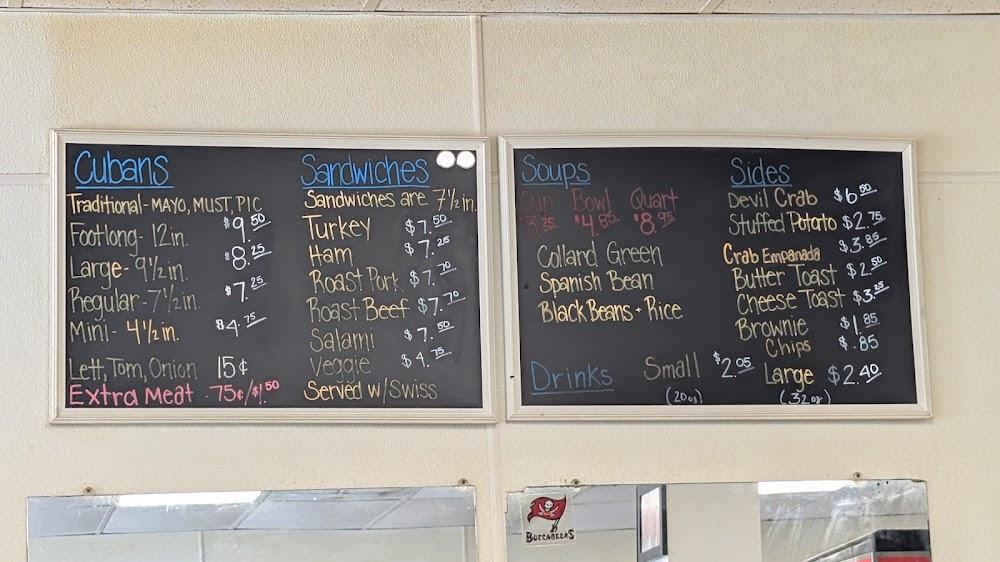 Cubans
Traditional - MAYO, MUST, PIC
Footlong - 12in. $9.50
Large - 9 1/2 in. $8.25
Regular - 7 1/2 in. $7.25
Mini - 4 1/2 in. $4.75
Lett, Tom, Onion 15¢
Extra Meat .75¢/$1.50
Sandwiches
Sandwiches are 7 1/2 in.
Turkey $7.50
Ham $7.25
Roast Pork $7.70
Roast Beef $7.70
Salami $7.50
Veggie $4.75
Served w/Swiss
Soups
Cup Bowl Quart
3.25 $4.85 $8.95
Collard Green
Spanish Bean
Black Beans + Rice
Sides
Devil Crab $6.50
Stuffed Potato $2.75
Crab Empanada $3.85
Butter Toast $2.50
Cheese Toast $3.25
Brownie $1.85
Chips $.85
Drinks Small $2.05 Large $2.40
(20oz) (32oz)
BUCCANEERS